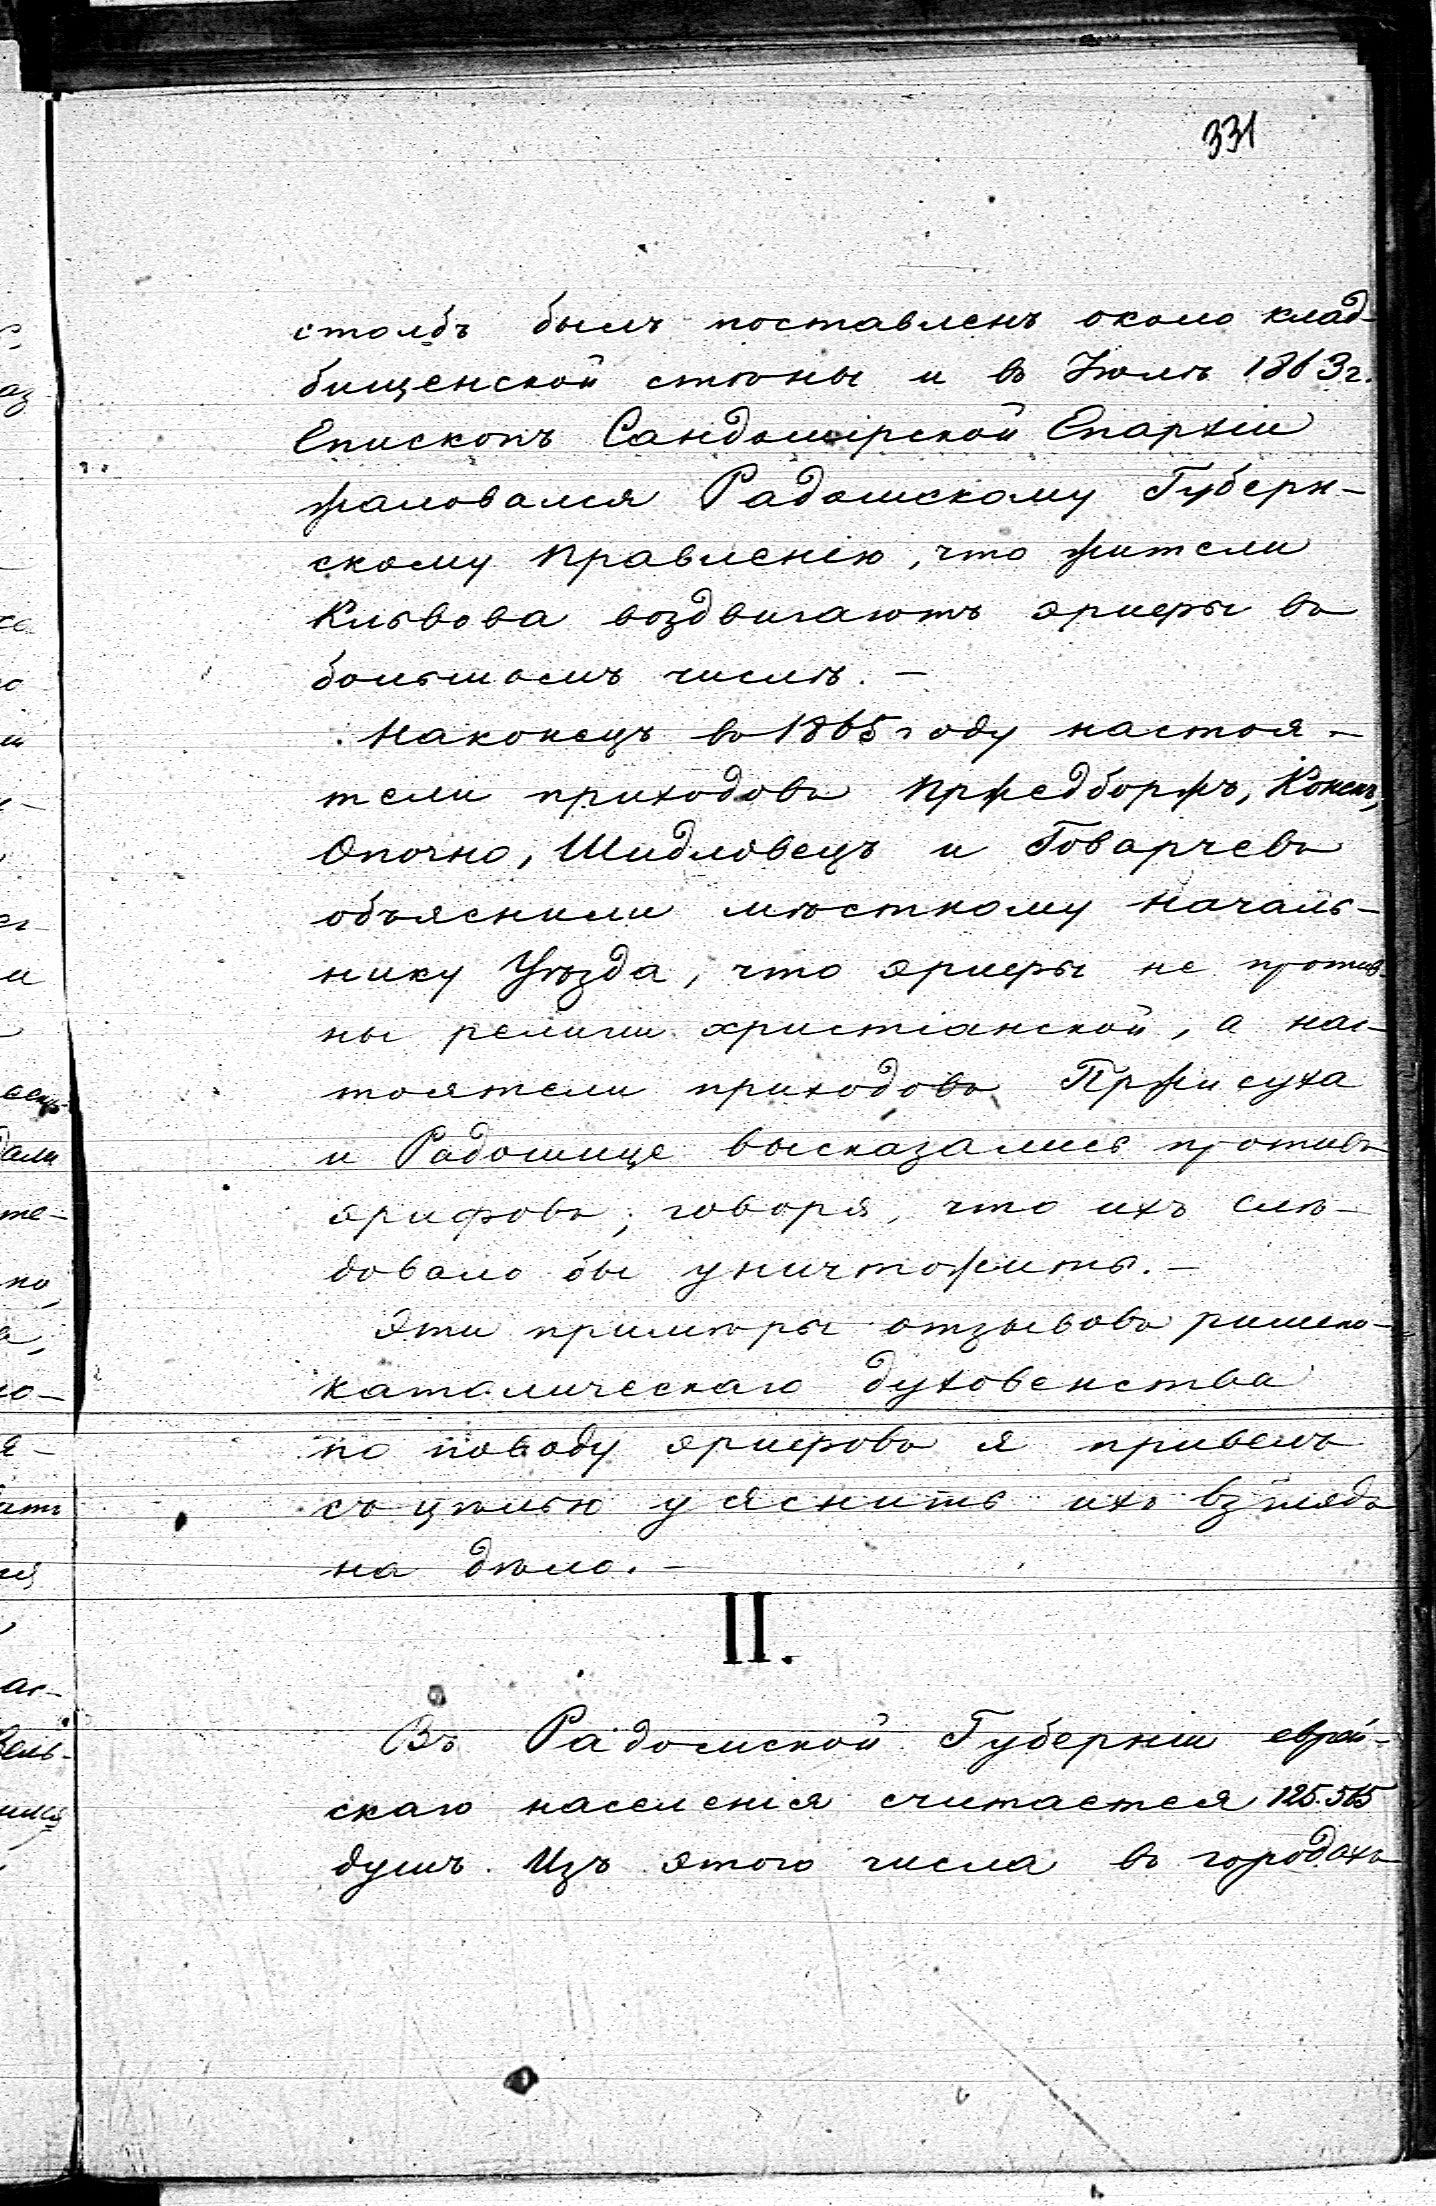 331
столбъ былъ поставленъ около клад-
бищенской стѣны и въ Іюлѣ 1863 г.
Епископъ Сандомірской Епархіи
жаловался Радомскому Губерн-
скому Правленію, что жители
Кльвова воздвигаютъ эрифы въ
большомъ числѣ. —
Наконецъ въ 1865 году настоя-
тели приходовъ Пржедборжъ, Конскъ,
Опочно, Шидловецъ и Говарчевъ
объяснили мѣстному Началь-
нику Уѣзда, что эрифы не против-
ны религіи христіанской, а нас-
тоятели приходовъ Пржисуха
и Радошице высказались противъ
эрифовъ, говоря, что ихъ слѣ-
довало бы уничтожить. —
Эти примѣры отзывовъ римско-
католическаго духовенства
по поводу эрифовъ я привелъ
съ цѣлью уяснить ихъ взглядъ
на дѣло. —
II.
Въ Радомской Губерніи еврей-
скаго населенія считается 125.565
душъ. Изъ этого числа въ городахъ